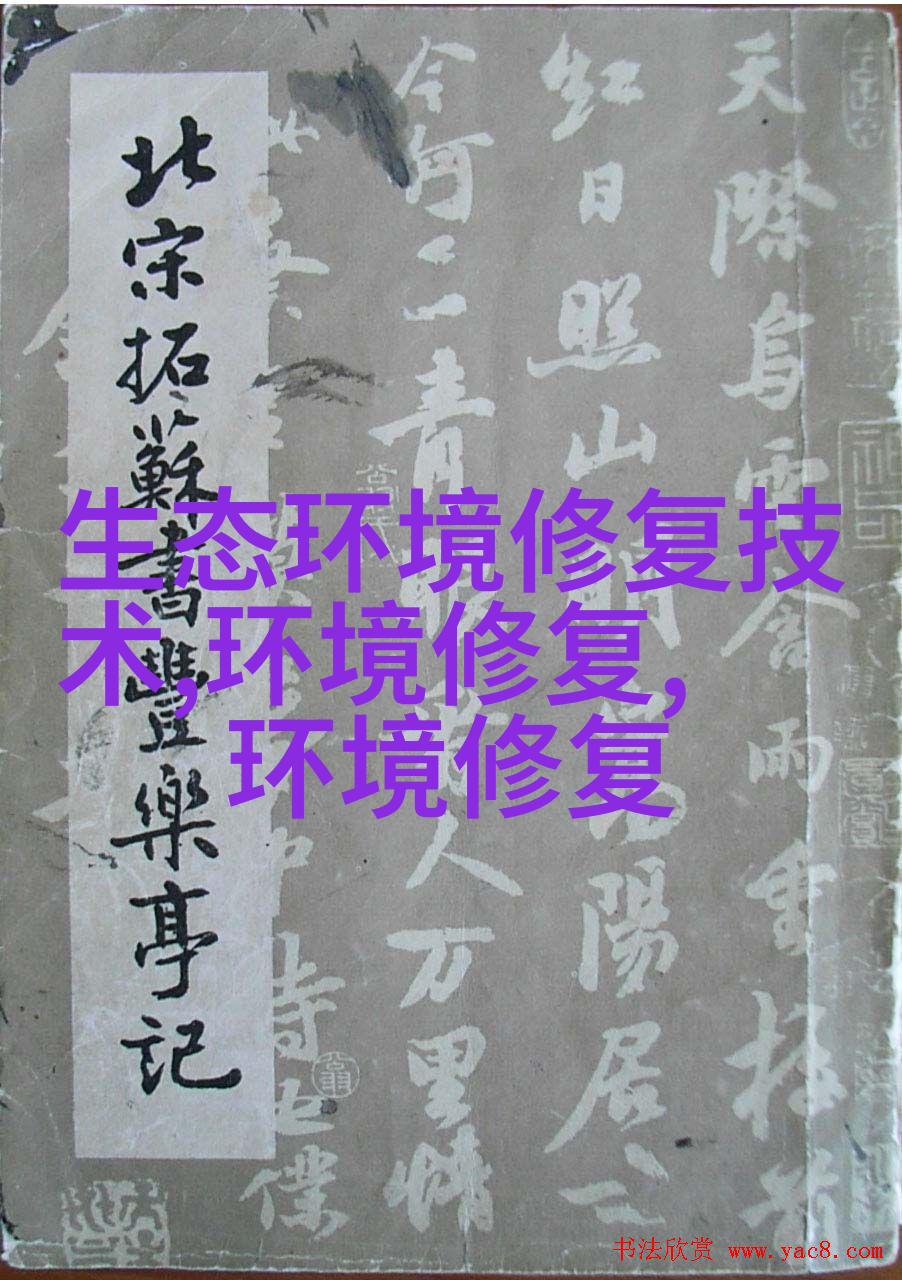 生态环境修复技
术,环境修复,
环境修复
天際烏雲含雨重樓前
紅日照山 陽居士
今何在青眼 人万里情
此蔡 中詩也僕
北宋拓蘇書豐樂亭記
书法欣赏 www.yac8.com